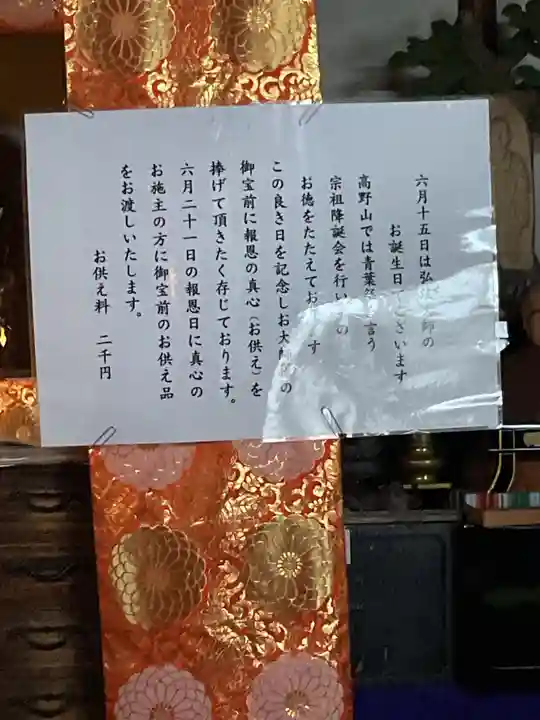 六月十五日は弘法大師の
お誕生日でございます
高野山では青葉祭と言う
宗祖降誕会を行い
お徳をたたえております
この良き日を記念しお大師様の
御宝前に報恩の真心（お供え）を
捧げて頂きたく存じております。
六月二十一日の報恩日に真心の
お施主の方に御宝前のお供え品
をお渡しいたします。
お供え料　二千円